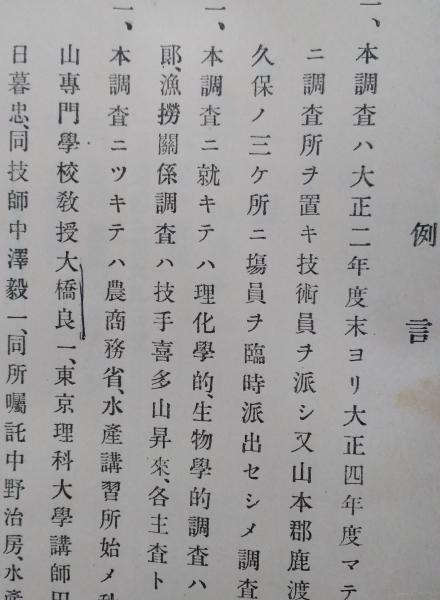 例言
一、本調査ハ大正二年度末ヨリ大正四年度マテ
ニ調査所ヲ置キ技術員ヲ派シ又山本郡鹿渡
久保ノ三ケ所ニ場員ヲ臨時派出セシメ調査
一、本調査ニ就キテハ理化學的、生物學的調査ハ
郞、漁撈關係調査ハ技手喜多山昇來、各主査ト
一、本調査ニツキテハ農商務省、水產講習所始メ
山專門學校敎授大橋良一、東京理科大學講師
日暮忠、同技師中澤毅一、同所囑託中野治房、水產